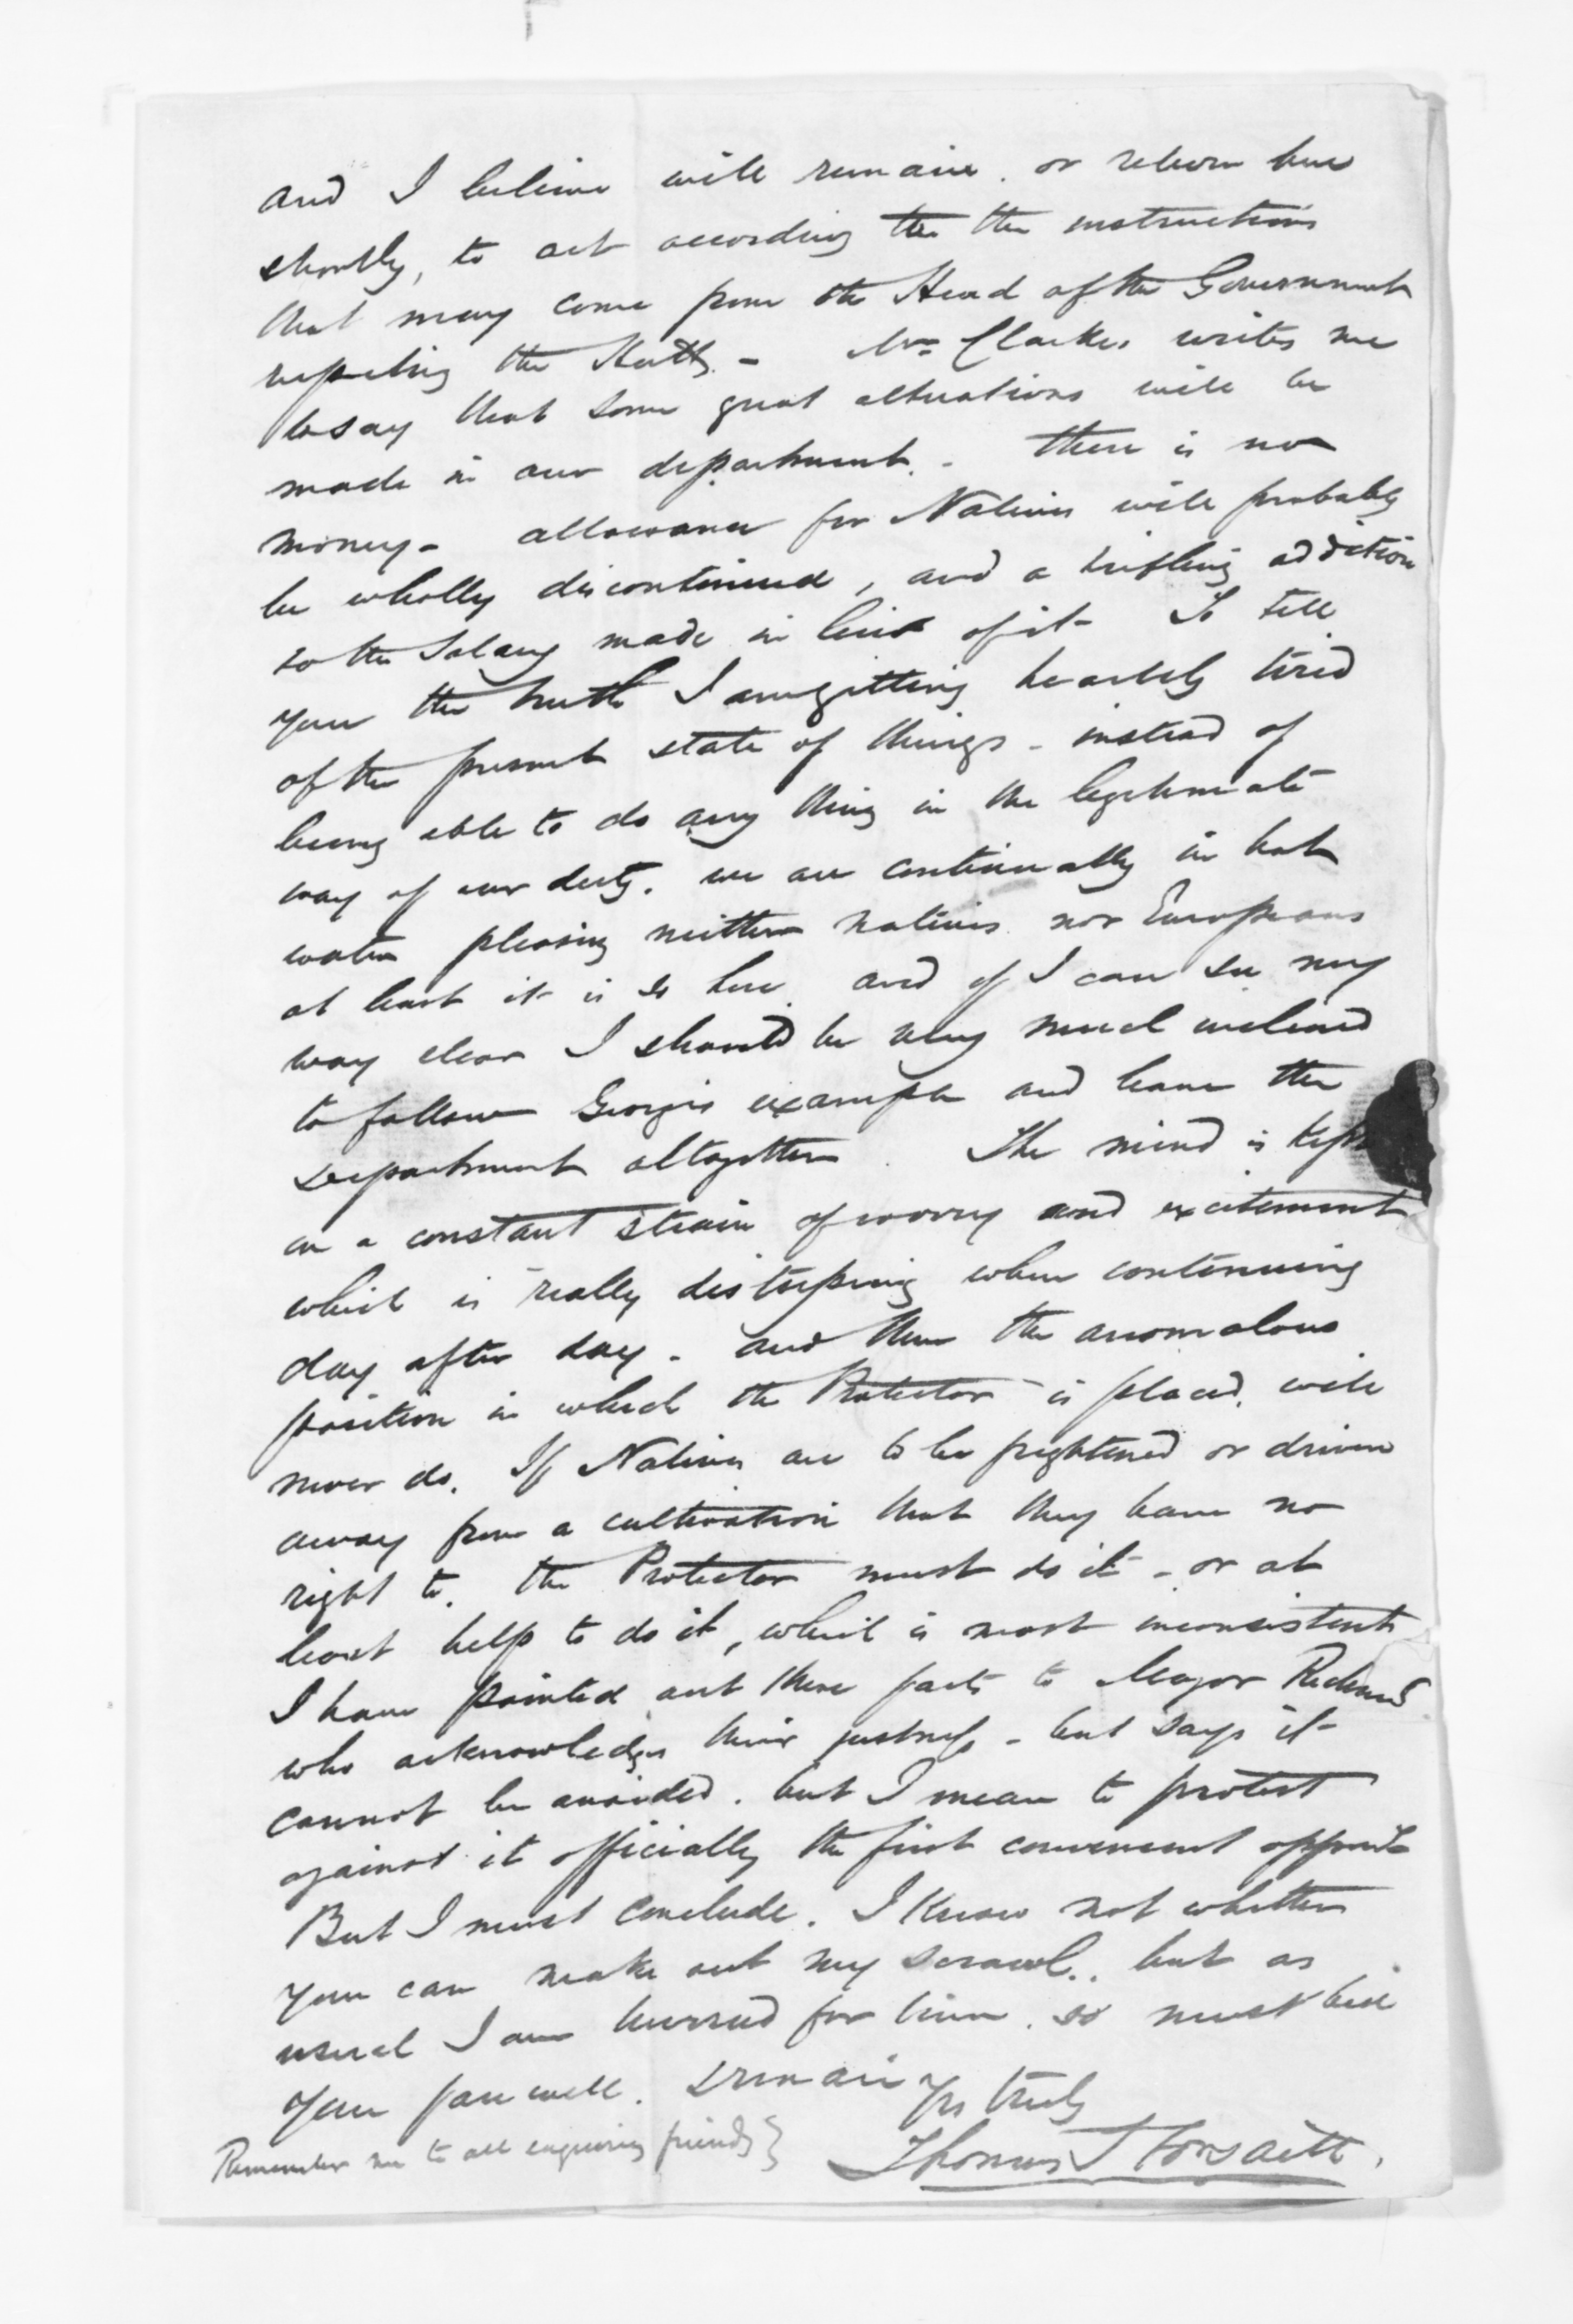 and I believe will remain or return here
shortly, to act according to the the instructions
that may come from the Head of the Government
respecting the Hutt. - Mr Clarke, writes me
to say that some great alterations will be
made in our department. - There is no
money - allowance for Natives will probably
be wholly discontinued, and a trifling addition
to the Salary made in lieu of it - To tell
you the truth I am gitting heartily tired
of the present state of things - instead of
being able to do any thing in the legitimate
way of our duty. we are continually in hot
water pleasing neither natives nor Europeans
at least it is so here. and if I can see my
way clear I should be very much inclined
to follow Georges example and leave the
department altogether. The mind is kept
on a constant strain of worry and excitement
which is really distressing when continuing
day after day - and then the anomalous
position in which the Protector is placed, will
never do. If Natives are to be frightened or driven
away from a cultivation that they have no
right to. the Protector must do it - or at
least help to do it, which is most inconsistent
I have pointed out these facts to Major Richmond
who acknowledges their justness - but says it
cannot be avoided. but I mean to protest
against it officially the first convenient
But I must conclude. I know not whether
you can make out my scrawl.. but as
usual I am hurried for time. so must bid
you farewell. remain Yrs truly
Thomas S Forsaith.
Remember me to all enquiring friends}